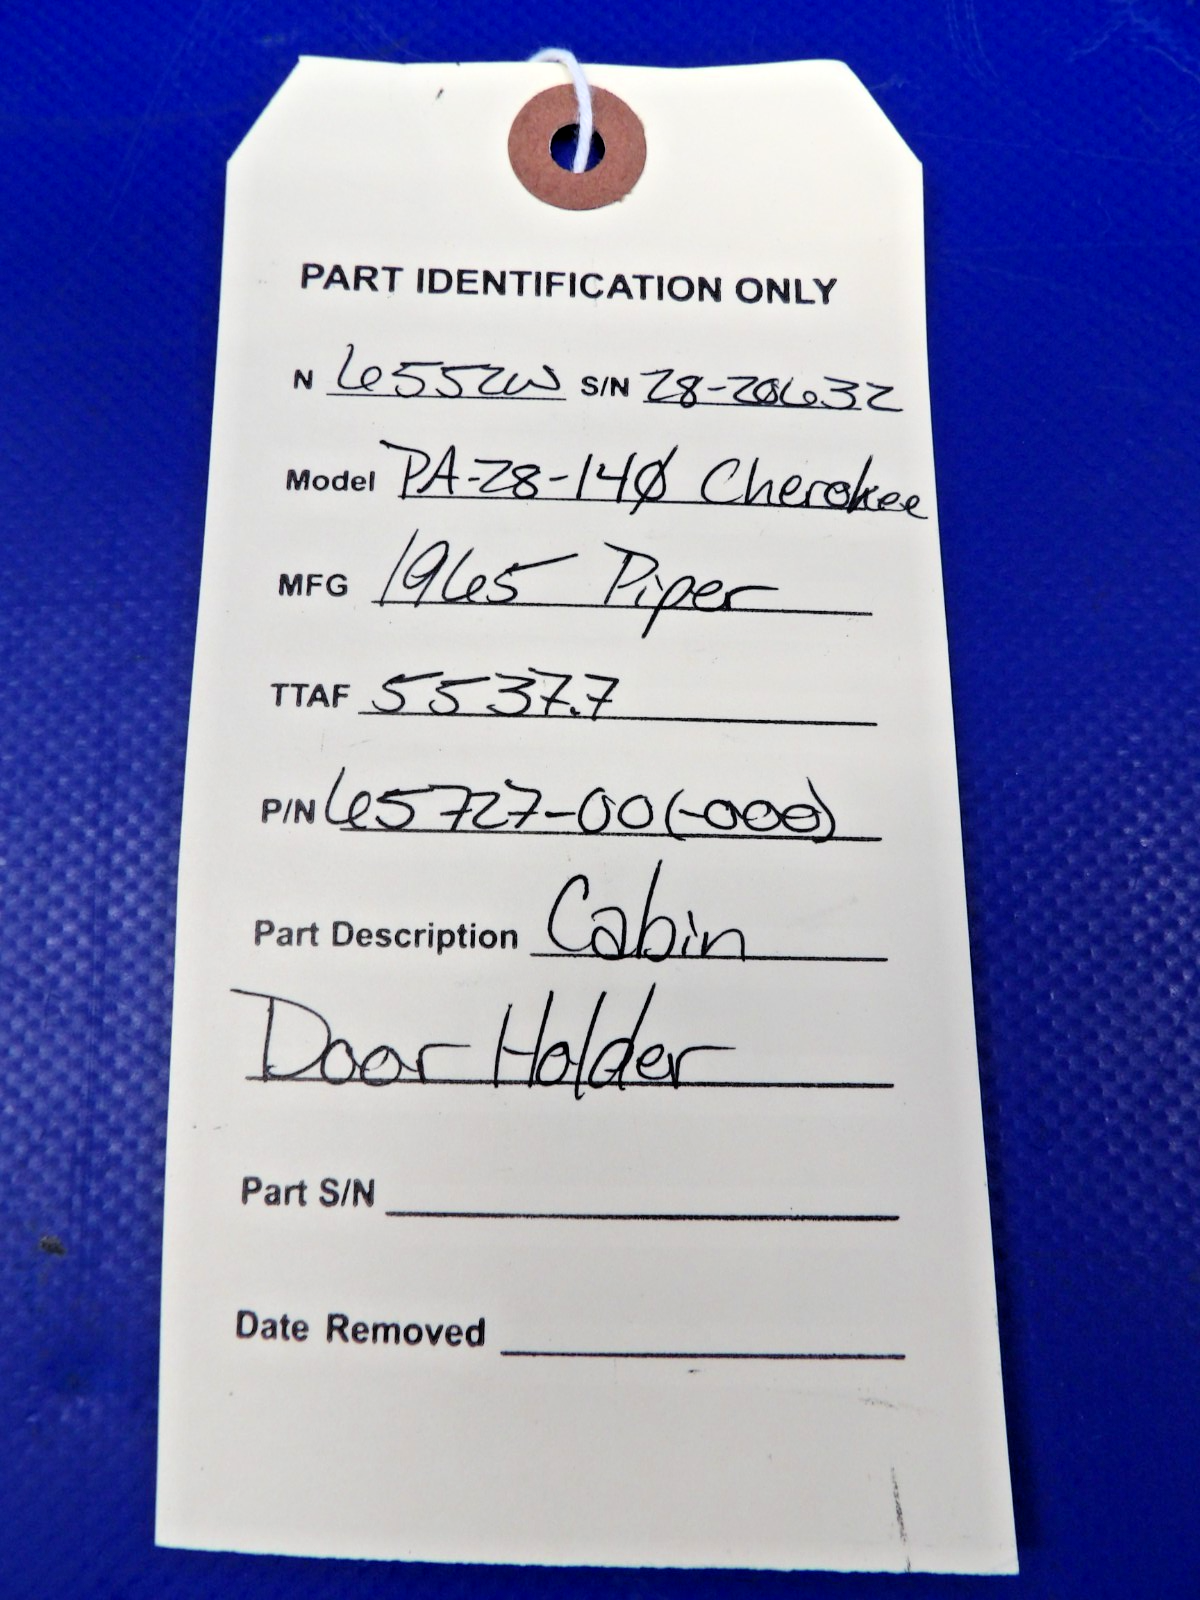 PART IDENTIFICATION ONLY
N 6552W S/N 28-20632
Model PA-28-140 Cherokee
MFG 1965 Piper
TTAF 5537.7
P/N 65727-00(-000)
Part Description Cabin
Door Holder
Part S/N
Date Removed